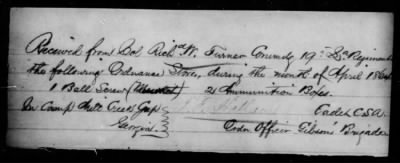 Received from Col Rich'd W. Turner Comdg 19" Regiment
the following Ordnance Stores, during the month of April 1864
1 Ball Screw (Musket) 21 Ammunition Boxes.
In Camp Mill Creek Gap
Georgia. Cadet C.S.A.
Ordn Officer Gibson's Brigade